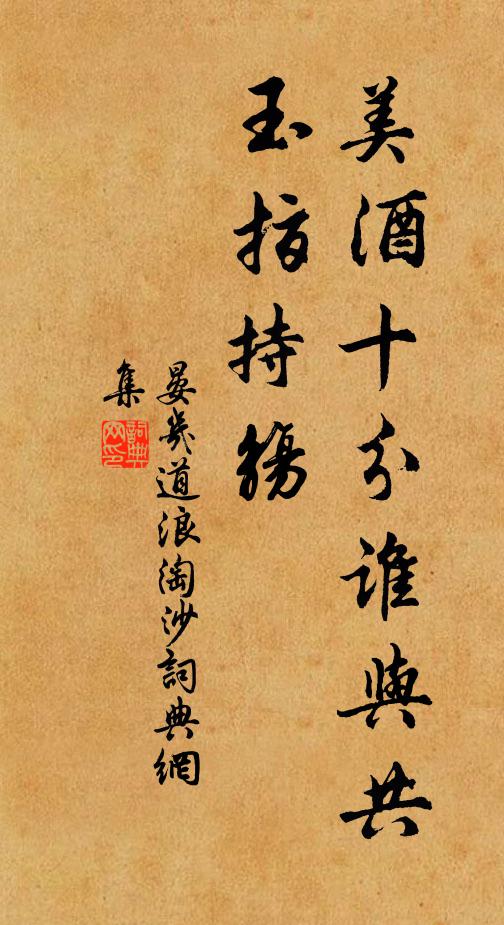 美酒十分誰與共
玉指持觴
晏幾道浪淘沙詞典網
集
詞典
网印